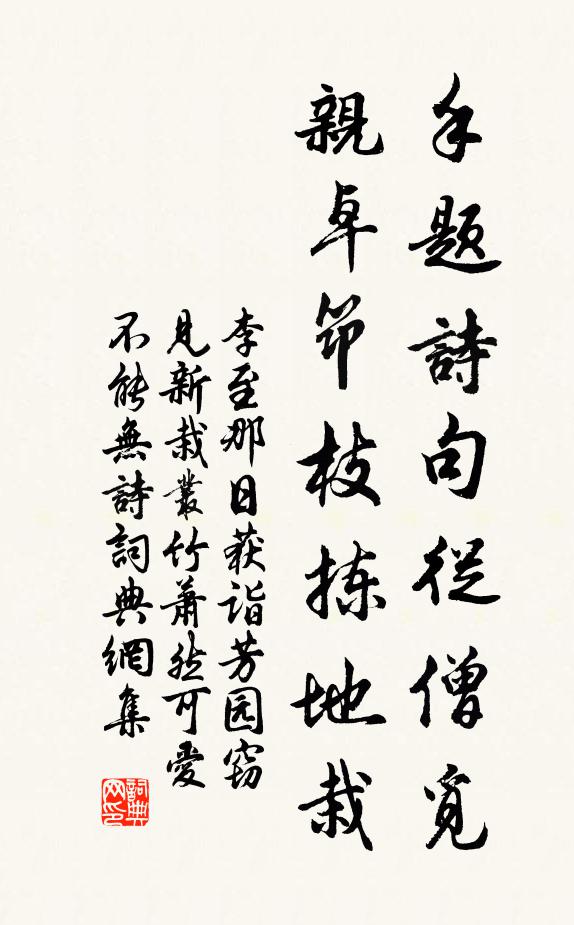 手题詩句從僧覓
親卓筇枝拣地栽
李至那日获诣芳园窃
見新栽叢竹蕭然可愛
不能無詩詞典網集
詞典
网印